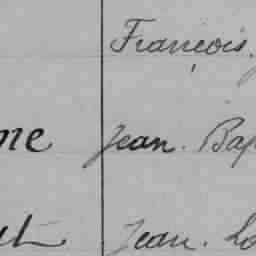 François.
ne Jean. Bap
Jean. Lo